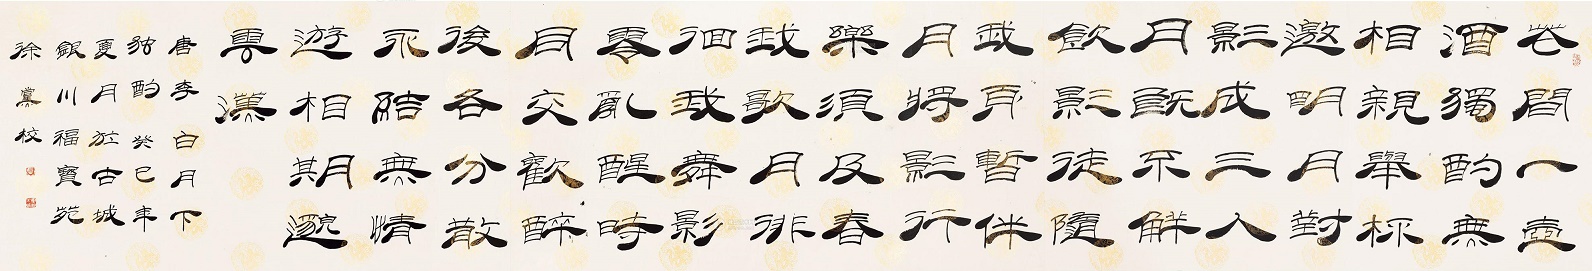 花間一壺
酒獨酌無
相親舉杯
邀明月對
影成三人
月既不解
飲影徒隨
我身暫伴
月將影行
樂須及春
我歌月徘
徊我舞影
零亂醒時
同交歡醉
後各分散
永結無情
遊相期邈
雲漢
唐李白月下
独酌癸巳年
夏月於古城
銀川福寶苑
徐黨校